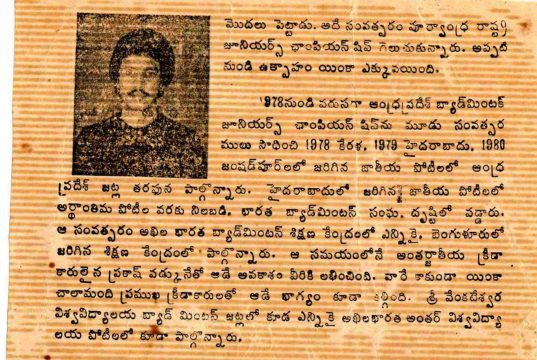 మొదలు పెట్టాడు. అదే సంవత్సరం పూర్వాంధ్ర రాష్ట్ర
జూనియర్స్ చాంపియన్ షివ్ గెలుచుకున్నారు. అప్పటి
నుండి ఉత్సాహం యింకా ఎక్కువయింది.
1978నుండి వరుసగా ఆంధ్రప్రదేశ్ బ్యాడ్‌మింటన్
జూనియర్స్ చాంపియన్ షివ్‌ను మూడు సంవత్సర
ములు సాధించి 1978 కేరళ, 1979 హైదరాబాదు, 1980
జంషడ్‌పూర్‌లలో జరిగిన జాతీయ పోటీలలో ఆంధ్ర
ప్రదేశ్ జట్ల తరఫున పాల్గొన్నారు. హైదరాబాదులో జరిగిన జాతీయ పోటీలలో
అర్థాంతిమ పోటీల వరకు నిలబడి, భారత బ్యాడ్‌మింటన్ సంఘ, దృష్టిలో పడ్డారు.
ఆ సంవత్సరం అఖిల భారత బ్యాడ్‌మింటన్ శిక్షణ కేంద్రంలో ఎన్నికై, బెంగుళూరులో
జరిగిన శిక్షణ కేంద్రంలో పాల్గొన్నారు. ఆ సమయంలోనే ఆంతర్జాతీయ క్రీడా
కారులైన ప్రకాష్ పడ్కునేతో ఆడే అవకాశం వీరికి లభించింది. వారే కాకుండా యింకా
చాలామంది ప్రముఖ క్రీడాకారులతో ఆడే భాగ్యం కూడా కల్గింది. శ్రీ వేంకటేశ్వర
విశ్వవిద్యాలయ బ్యాడ్ మింటన్ జట్లలో కూడ ఎన్నికై అఖిలభారత అంతర్ విశ్వవిద్యా
లయ పోటీలలో కూడా పాల్గొన్నారు.